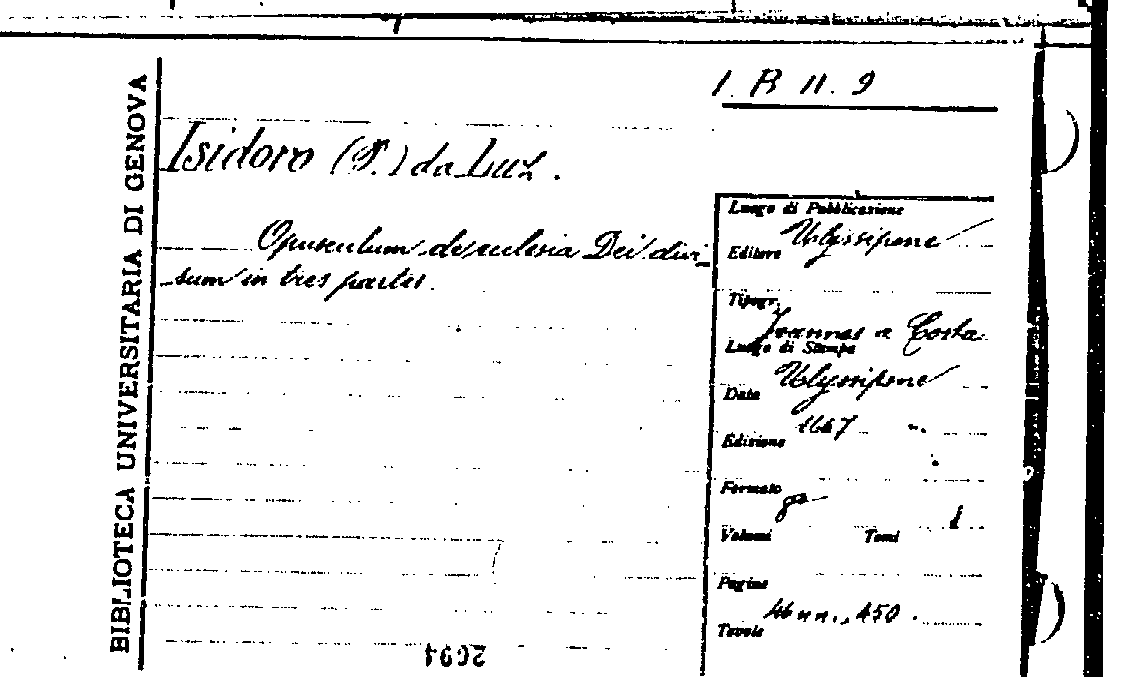 BIBLIOTECA UNIVERSITARIA DI GENOVA
1. B 11. 9
Isidoro (P.) da Luz.
Opusculum de eclesia Dei divi-
sum in tres partes.
Luogo di Pubblicazione
Ulyssipone
Editore
Tipogr.
Joannes a Costa
Luogo di Stampa
Ulyssipone
Data
Edizione
Formato
Volumi Tomi 1
Pagine
46 nn., 450.
Tavole